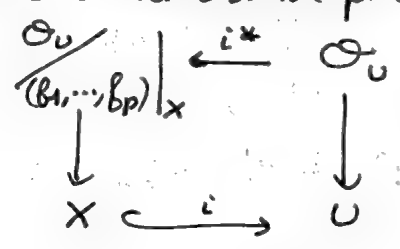 𝒪_U/(f_1, ⋯, f_p)|_X ← i* 𝒪_U
↓ ↓
X ↪ i U